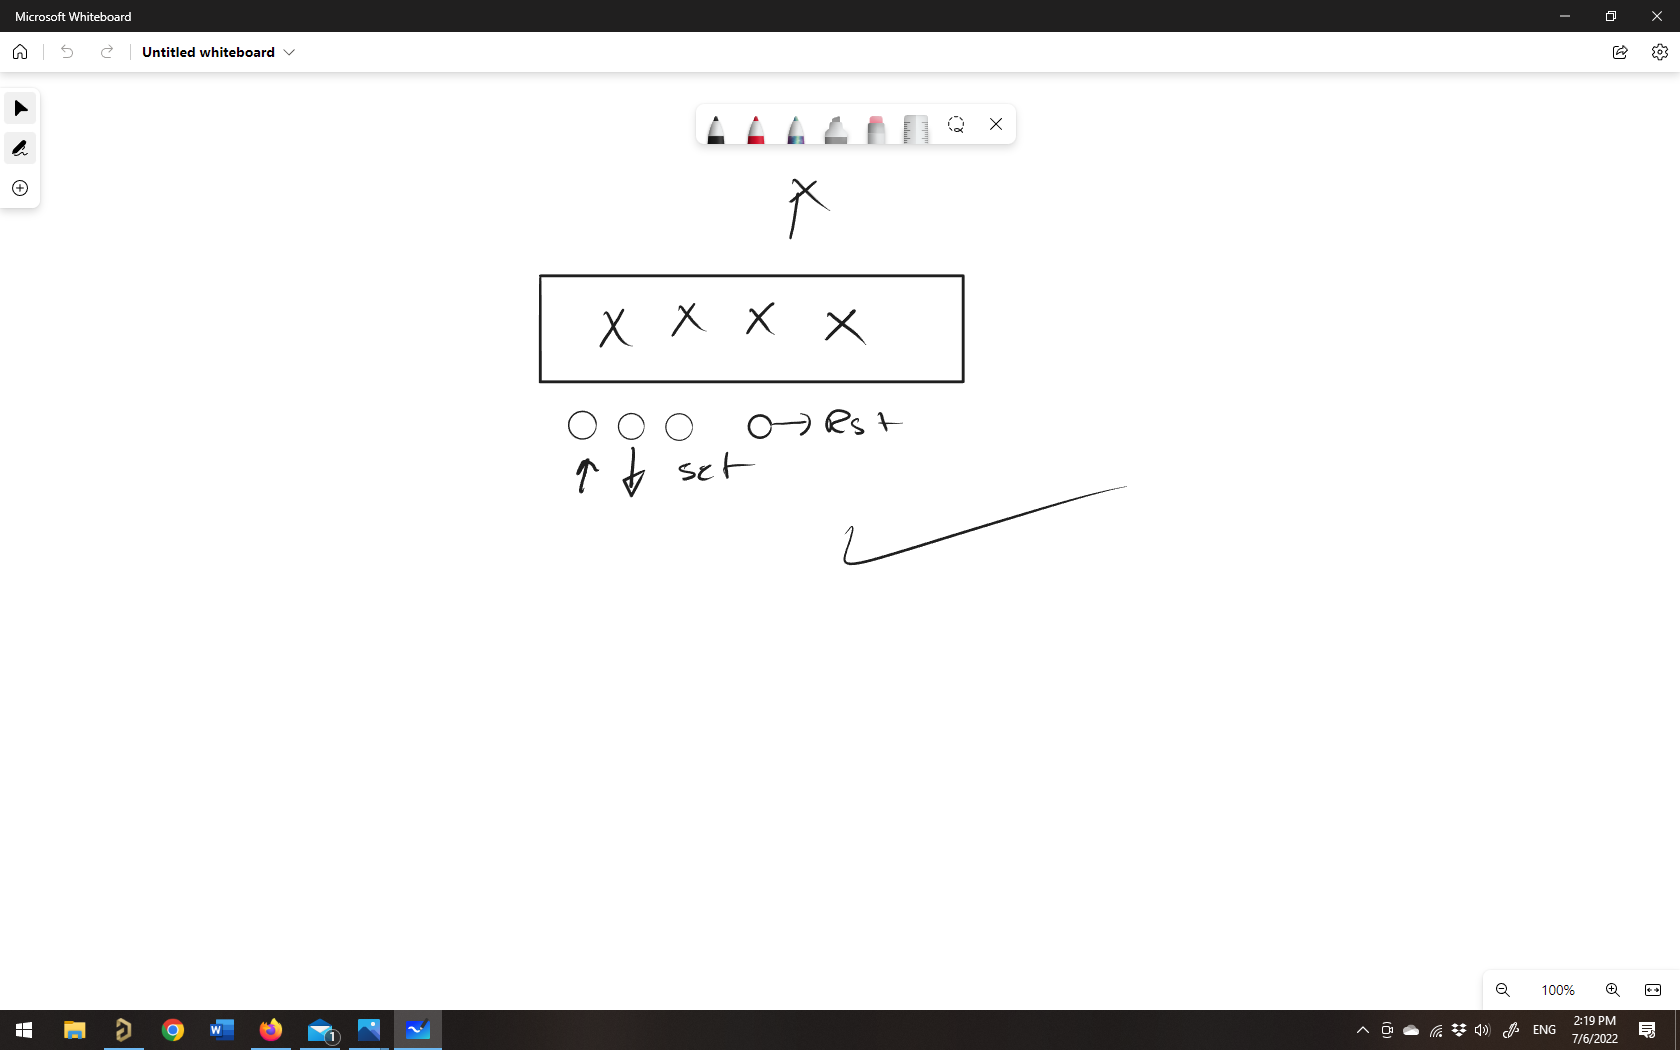 Microsoft Whiteboard
Untitled whiteboard
X
X X X X
Rst
set
100%
W
1
ENG
2:19 PM
7/6/2022